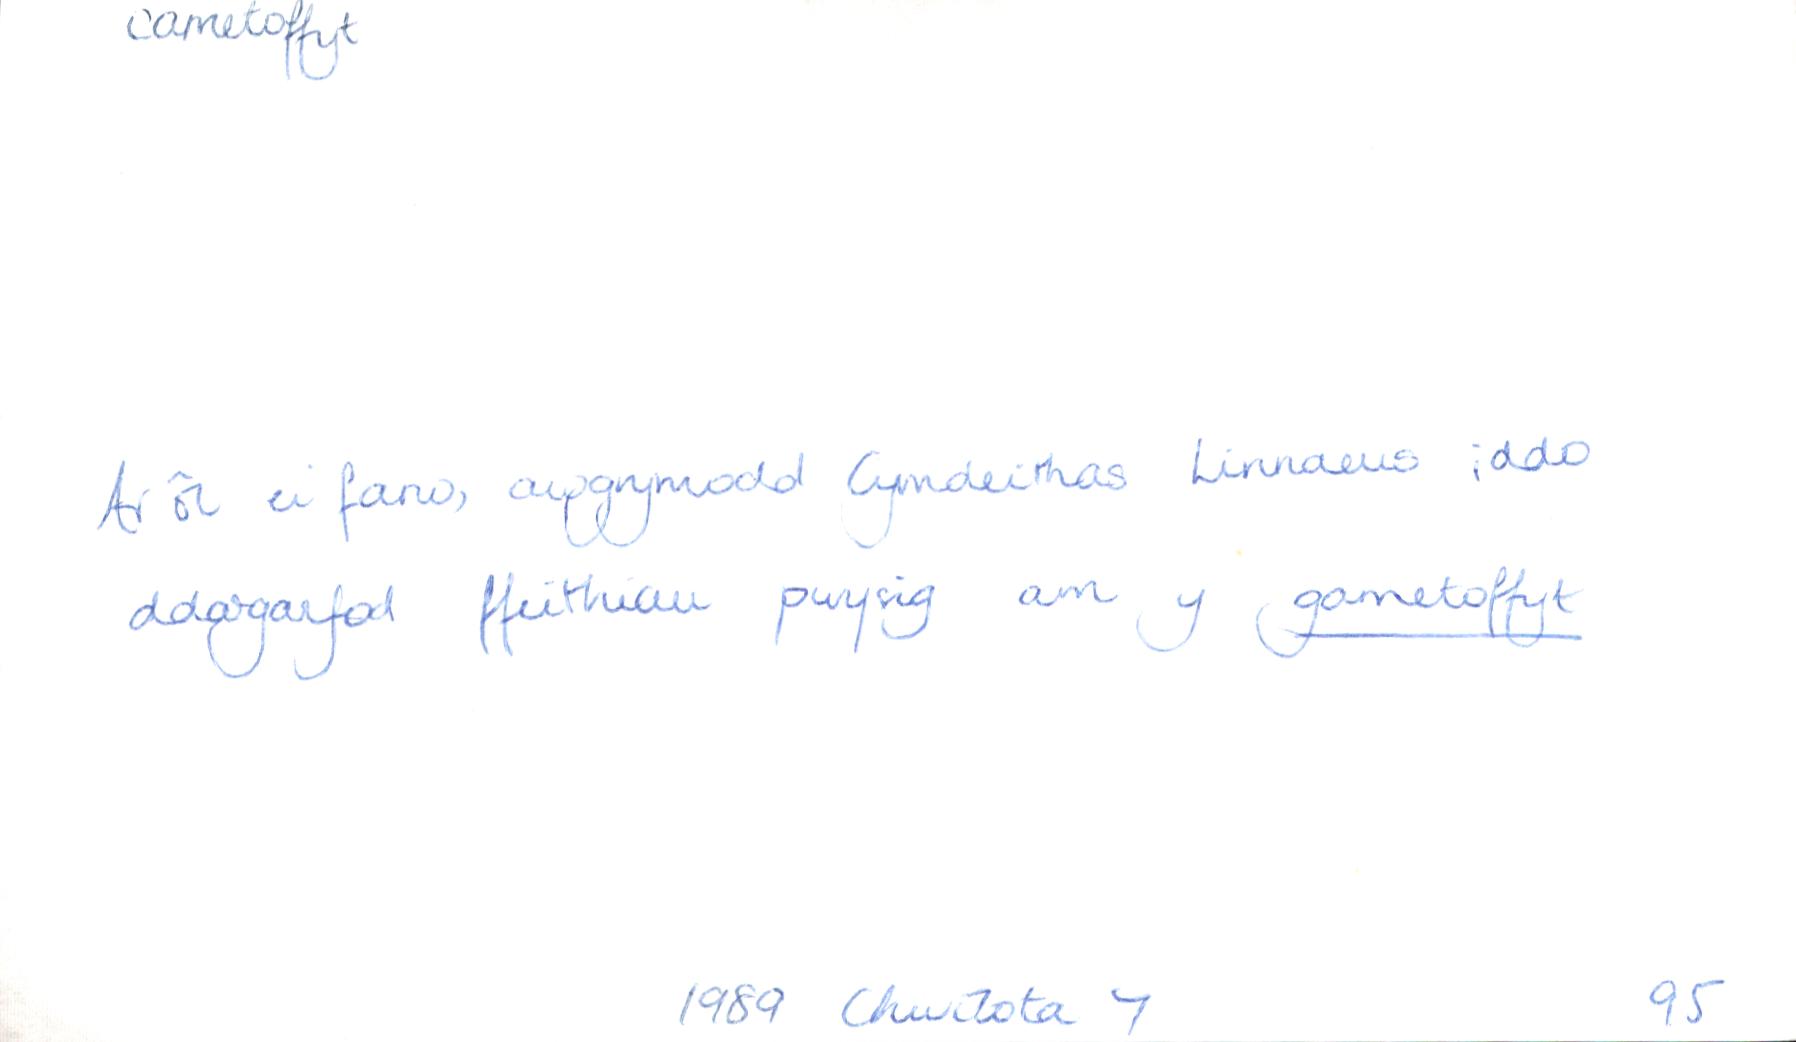 cametoffyt
Ar ôl ei farw, awgrymodd Cymdeithas Linnaeus iddo
ddargarfod ffeithiau pwysig am y gametoffyt
1989 Chwilota 7 95